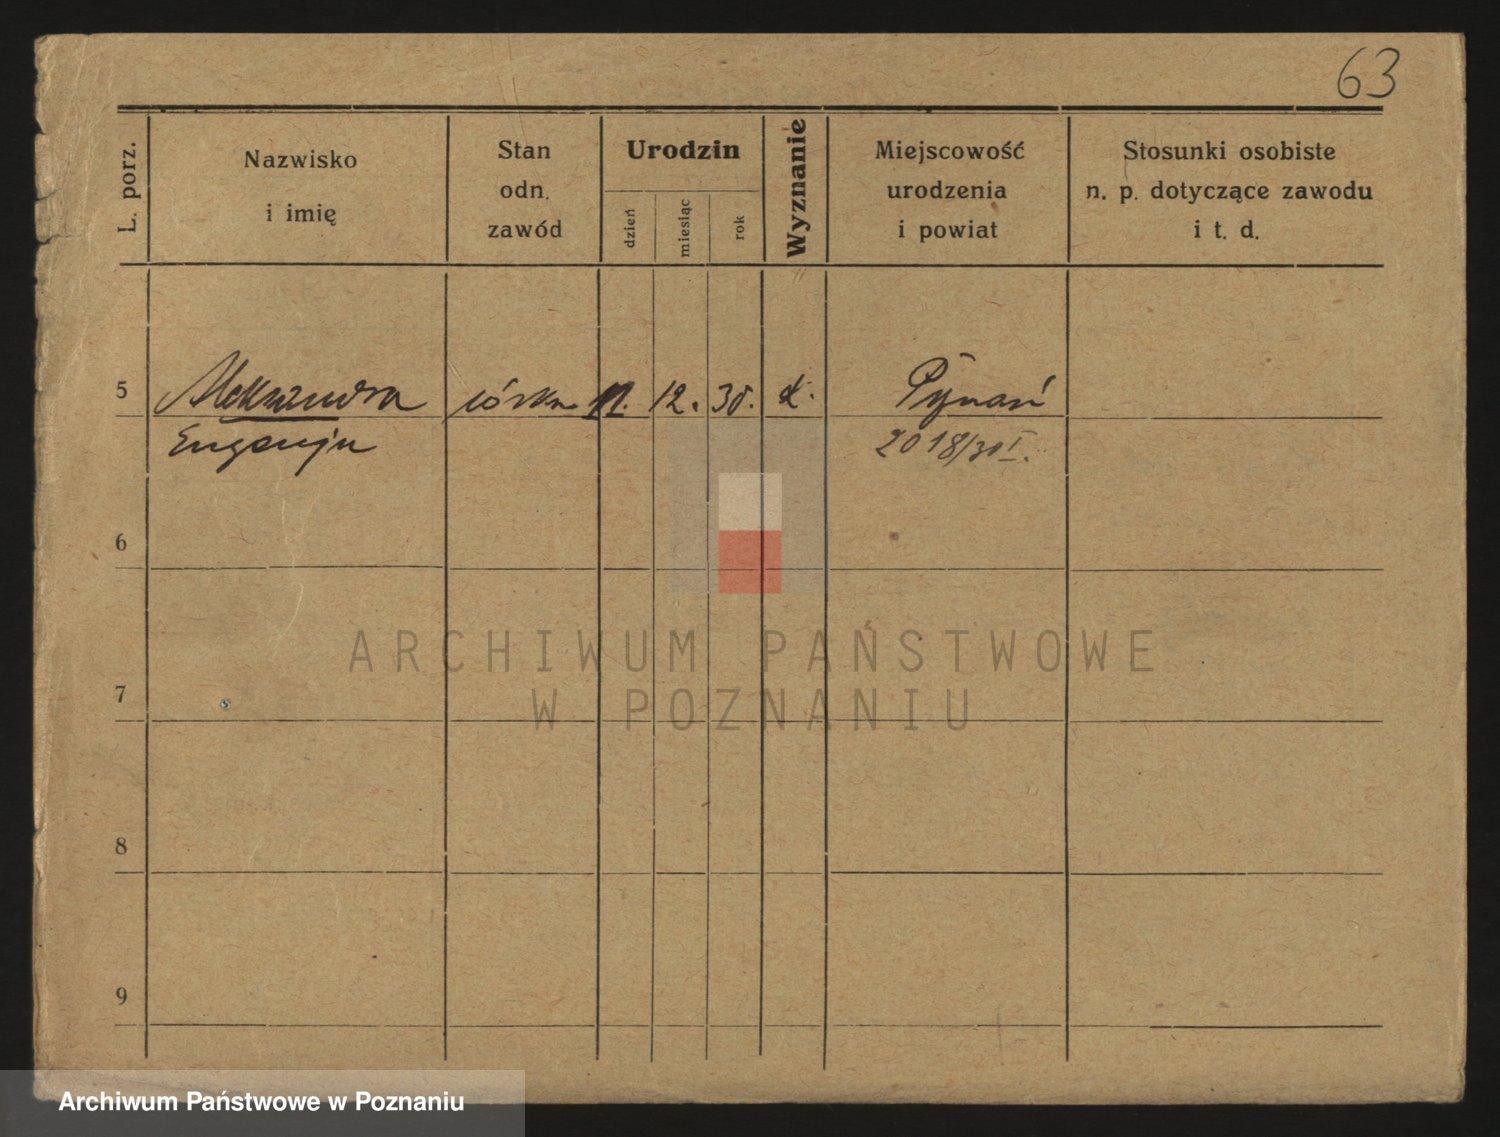 63
L. porz.
Nazwisko
i imię
Stan
odn.
zawód
Urodzin
dzień
miesiąc
rok
Wyznanie
Miejscowość
urodzenia
i powiat
Stosunki osobiste
n. p. dotyczące zawodu
i t. d.
5 Aleksandra córka 11. 12. 30. k.
Eugenja 2018/30 I.
6
7
8
9
ARCHIWUM PAŃSTWOWE
W POZNANIU
Archiwum Państwowe w Poznaniu